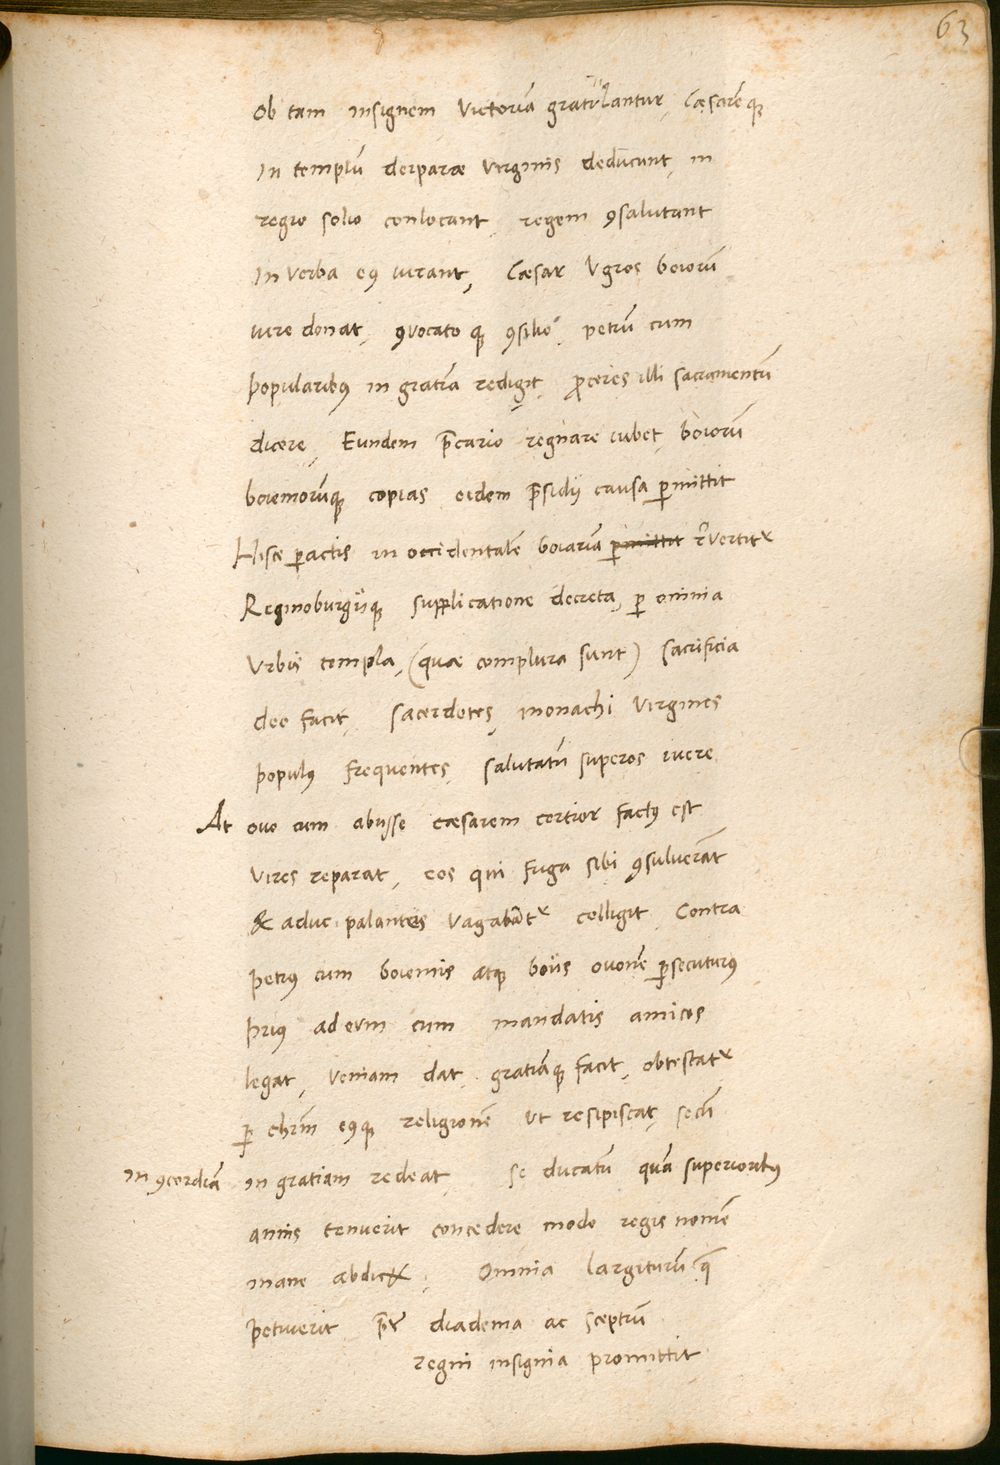 63
Ob tam insignem Victoriā gratulantur, Cæsarēq̃
In templū deiparæ virginis deducunt, in
regio solio conlocant regem ꝯsalutant
In verba eiꝰ iurant, Cæsar Vgros boiorū
iure donat, ꝯvocato q̃ ꝯsilio petrū cum
popularibꝰ in gratiā redigit, ꝓceres illi sacramentū
dicere, Eundem p̄cario regnare iubet, boiorū
boiemorūq̃ copias eidem p̄sidij causa ꝑmittit
Hisce ꝑactis in occidentalē boiariā ꝑmittit rēvertitr
Reginoburgijq̃ supplicatione decreta, ꝑ omnia
vrbis templa, (quæ complura sunt) sacrificia
deo facit, sacerdotes, monachi virgines
populꝰ frequentes, salutatū superos iuere
At ovo cum abijsse cæsarem certior factꝰ est
vires reparat, eos qui fuga sibi ꝯsuluerāt
& aduc palanteis vagabātr colligit, Contra
petrꝰ cum boiemis atq̃ boijs ovonē ꝑsecuturꝰ
priꝰ ad eum cum mandatis amicos
legat, veniam dat, gratiāq̃ facit, obtestatr
ꝑ chrm̄ eiꝰq̃ religionē vt resipiscat, secū
In ꝯcordiā in gratiam redeat, se ducatū quā superioribꝰ
annis tenuerit concedere modo regis nomē
inane abdicet, Omnia largiturū q̃
petiuerit p̄ter diadema ac sceptrū
regni insignia promittit